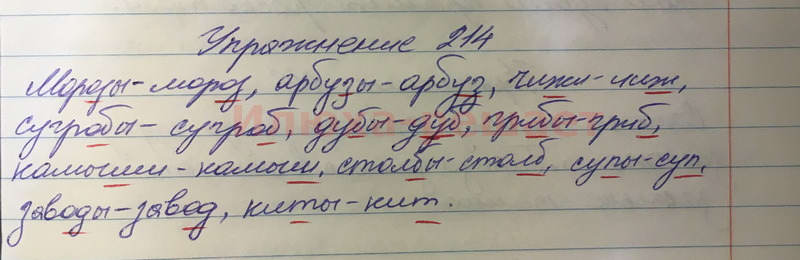 Упражнение 214
Морозы-мороз, арбузы-арбуз, чижи-чиж,
сугробы-сугроб, дубы-дуб, грибы-гриб,
камыши-камыш, столбы-столб, супы-суп,
заводы-завод, киты-кит.